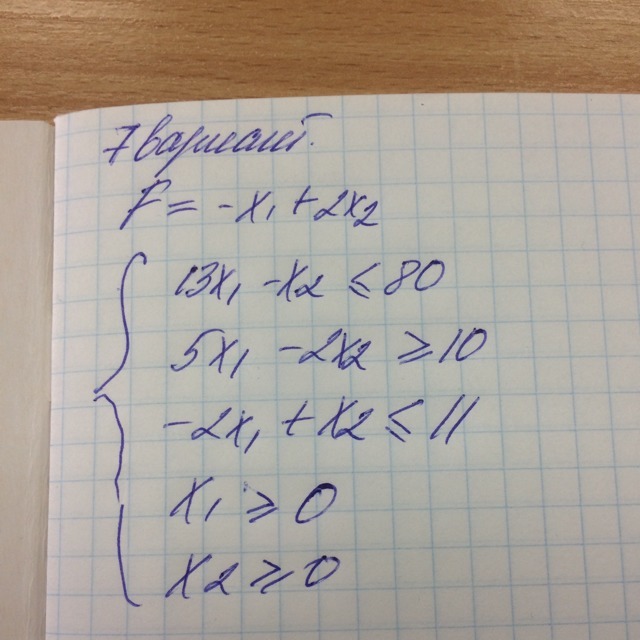 7 вариант.
F = -x₁ + 2x₂
13x₁ - x₂ ≤ 80
5x₁ - 2x₂ ≥ 10
-2x₁ + x₂ ≤ 11
x₁ ≥ 0
x₂ ≥ 0